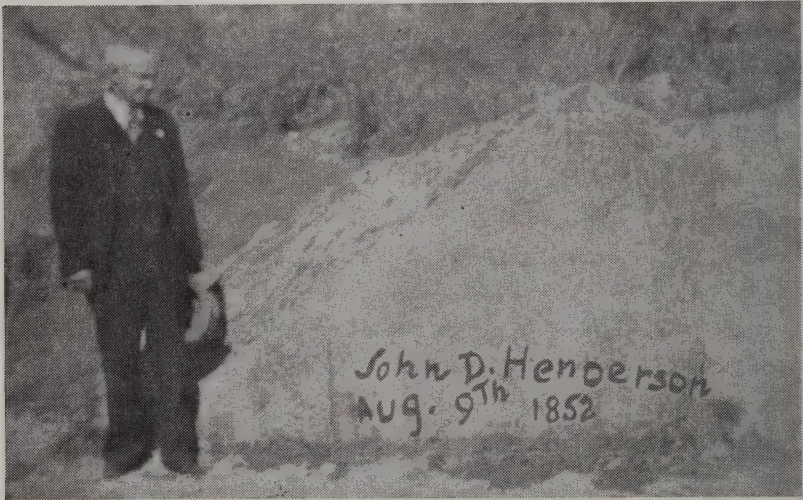 John D. Henderson
Aug. 9Th 1852